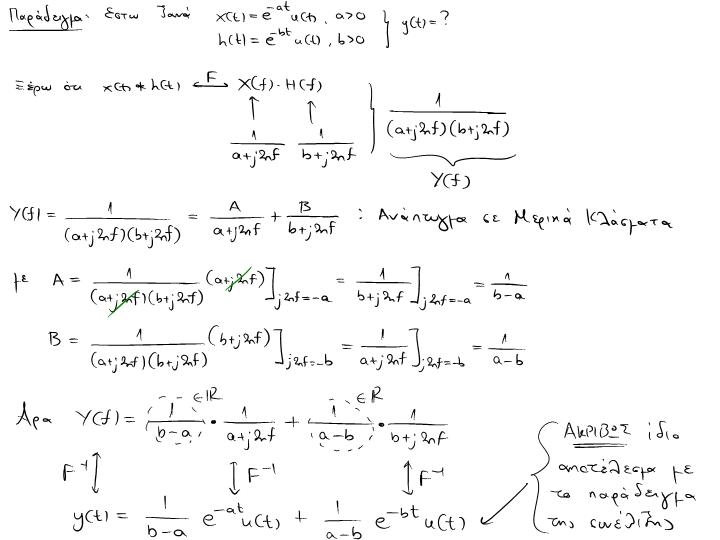 Παράδειγμα: Έστω ξανά x(t) = e^{-at} u(t), a>0
h(t) = e^{-bt} u(t), b>0 } y(t) = ?
Ξέρω ότι x(t) * h(t) ⟷^{F} X(f) · H(f)
↑ ↑
1/(a+j2πf) 1/(b+j2πf) } 1/((a+j2πf)(b+j2πf))
Y(f)
Y(f) = 1/((a+j2πf)(b+j2πf)) = A/(a+j2πf) + B/(b+j2πf) : Ανάπτυγμα σε Μερικά Κλάσματα
με A = 1/((a+j2πf)(b+j2πf)) (a+j2πf)]_{j2πf=-a} = 1/(b+j2πf)]_{j2πf=-a} = 1/(b-a)
B = 1/((a+j2πf)(b+j2πf)) (b+j2πf)]_{j2πf=-b} = 1/(a+j2πf)]_{j2πf=-b} = 1/(a-b)
∈ℝ ∈ℝ
Άρα Y(f) = 1/(b-a) · 1/(a+j2πf) + 1/(a-b) · 1/(b+j2πf)
F^{-1} ↕ ↕ F^{-1} ↕ F^{-1}
y(t) = 1/(b-a) e^{-at} u(t) + 1/(a-b) e^{-bt} u(t)
ΑΚΡΙΒΩΣ ίδιο
αποτέλεσμα με
το παράδειγμα
της συνέλιξης